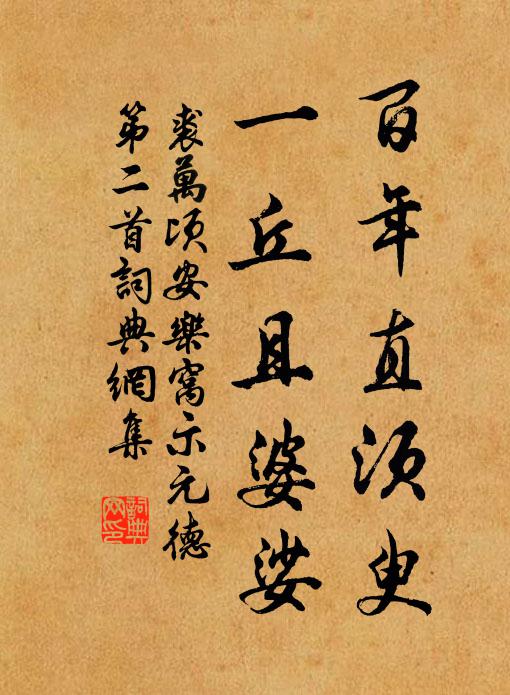 百年直須臾
一丘且婆娑
裘萬頃安樂窩示元德
第二首詞典網集
詞典網印